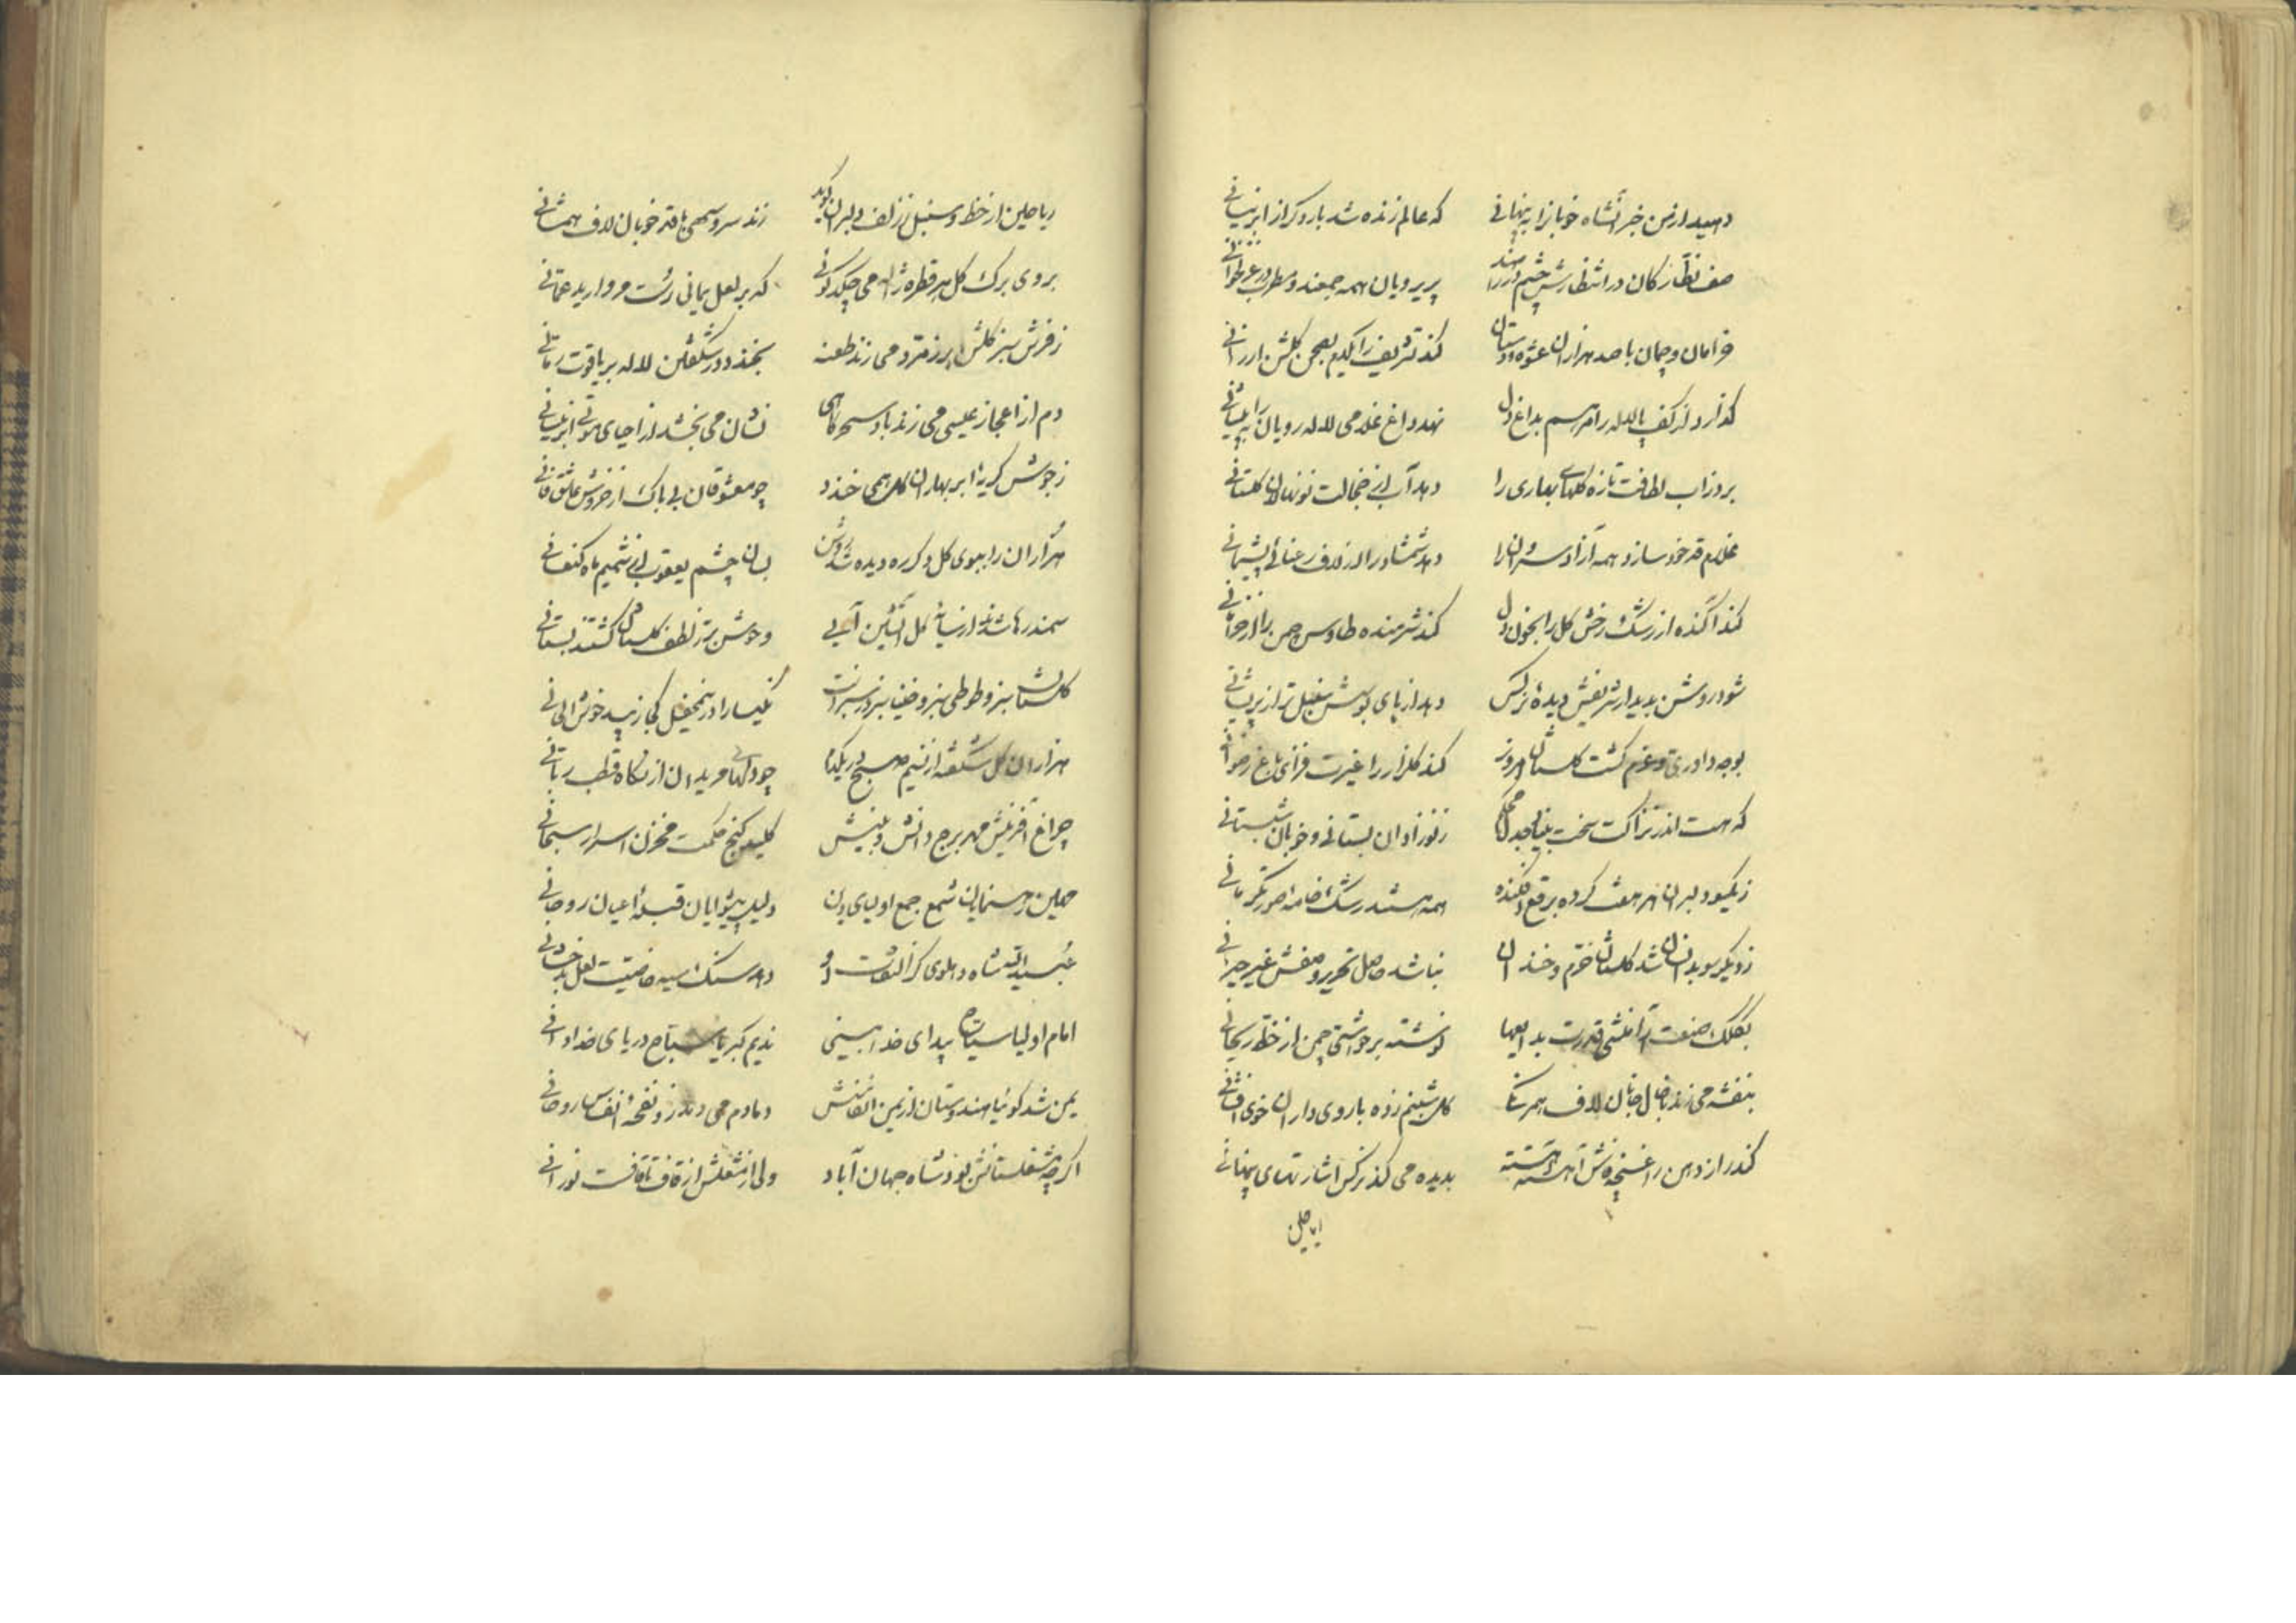 دهید از من خبر آنشاه خوبانرا به پنهانی که عالم زنده شد بار دکر از ابر نیسانی
صف نظارکان در انتظارش چشم در راهند پریرویان همه جمعند و مطرب در غزلخوانی
خرامان و چمان با صد هزاران عشوه و دستان کند تشریف را یکدم بصحن کلشن ارزانی
کذارد از کف پا لاله را مرهم بداغ دل نهد داغ غلامی لاله رویان را به پیشانی
برد زاب لطافت تازه کلهای بهاری را دهد آب از خجالت نونهالان کلستانی
غلام قد خود سازد همه آزاد سروانرا دهد شمشاد را از لاف رعنائی پشیمانی
کند آکنده از رشک رخش کل را بخون دل کند شرمنده طاوس چمن را از خرامانی
شود روشن بدیدار شریفش دیدهٔ نرکس دهد از پای بوسش سنبل تر از پریشانی
بوجد آوردی و عزم کشت کلستان امروز کند کلزار را غیرت فزای باغ رضوانی
که هست اندر نزاکت سخت بیتابی جدل محکم ز نوزادان بستانی و خوبان شبستانی
ز یکسو دلبران هر هفت کرده برقع افکنده همه هستند رشک خامه صورتکر مانی
ز دیکر سو بدانسان شد کلستان خرم و خندان نباشد حاصل تحریر وصفش غیر حیرانی
بکلک صنعت آرا منشی قدرت بدایعها نوشته بر حواشی چمن از خط ریحانی
بنفشه می زند با خال خوبان لاف همرنکی کل شبنم زده با روی داران خوی افشانی
کند راز دهن را غنچه‌وش آهسته آهسته بدیده می کند نرکس اشارتهای پنهانی
ریاحین
ریاحین از خط و سنبل ز زلف دلبران کوید زند سرو سهی با قد خوبان لاف همشانی
بروی برک کل هر قطره ژاله می چکد کوئی که بر لعل یمانی رست مروارید عمانی
ز فرش سبز کلشن بر زمرد می زند طعنه بخندد در شکفتن لاله بر یاقوت رمانی
دم از اعجاز عیسی می زند باد سحرکاهی نشان می بخشد از احیای موتی ابر نیسانی
ز جوش کریهٔ ابر بهاران کل همی خندد چو معشوقان بی باک از خروش عاشق فانی
هزاران را ببوی کل دکر ره دیده شد روشن بسان چشم یعقوب از شمیم ماه کنعانی
سمندرها شدند از سایهٔ کل آتشین آبی وحوش بر ز لطف کلستان کشتند بستانی
کلستان سبز و طوطی سبز و مینا سبز و سر سبزانست نکیسا را در این محفل کجا زیبد خوش الحانی
هزاران کل شکفته از نسیم صبح در یکدم چو دلهای مریدان از نکاه قطب ربانی
چراغ آفرینش مهر برج دانش و بینش کلید کنج حکمت مخزن اسرار سبحانی
مهین رهنمایان شمع جمع اولیای دین دلیل پیشوایان قبلهٔ اعیان روحانی
عبیدالله شاه دهلوی کز التفات او دهد سنک سیه خاصیت لعل بدخشانی
امام اولیا سیاح بیدای خدا بینی ندیم کبریا سباح دریای خدادانی
یمن شد کوئیا هندوستان از یمن انفاسش دمادم می دمد زو نفحهٔ انفاس روحانی
اکرچه مشعلستانش بود شاه جهان آباد ولی از مشعلش از قاف تا قافست نورانی